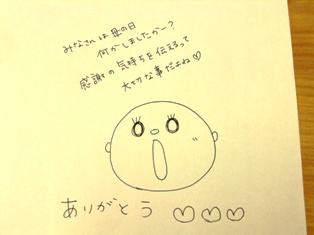 みなさんは母の日
何かしましたかー?
感謝の気持ちを伝えるって
大切な事だよね♡
ありがとう ♡♡♡